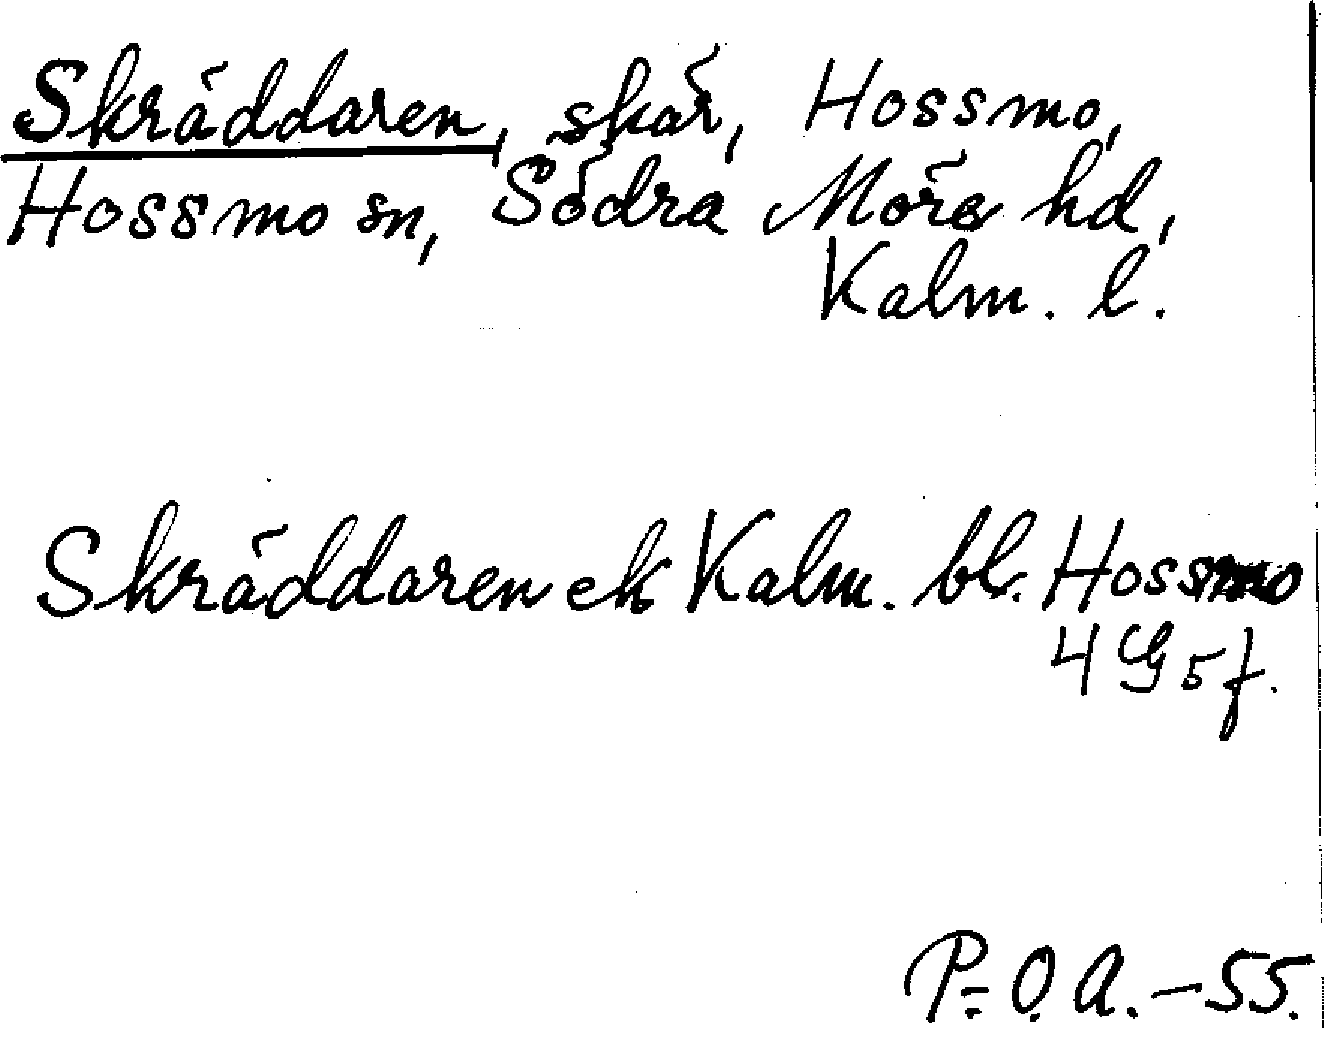 Skräddaren, skär, Hossmo,
Hossmo sn, Södra Möre hd,
Kalm. l.
Skräddaren ek Kalm. bl. Hossmo
4 G 5 f.
P.-O. A. -55.